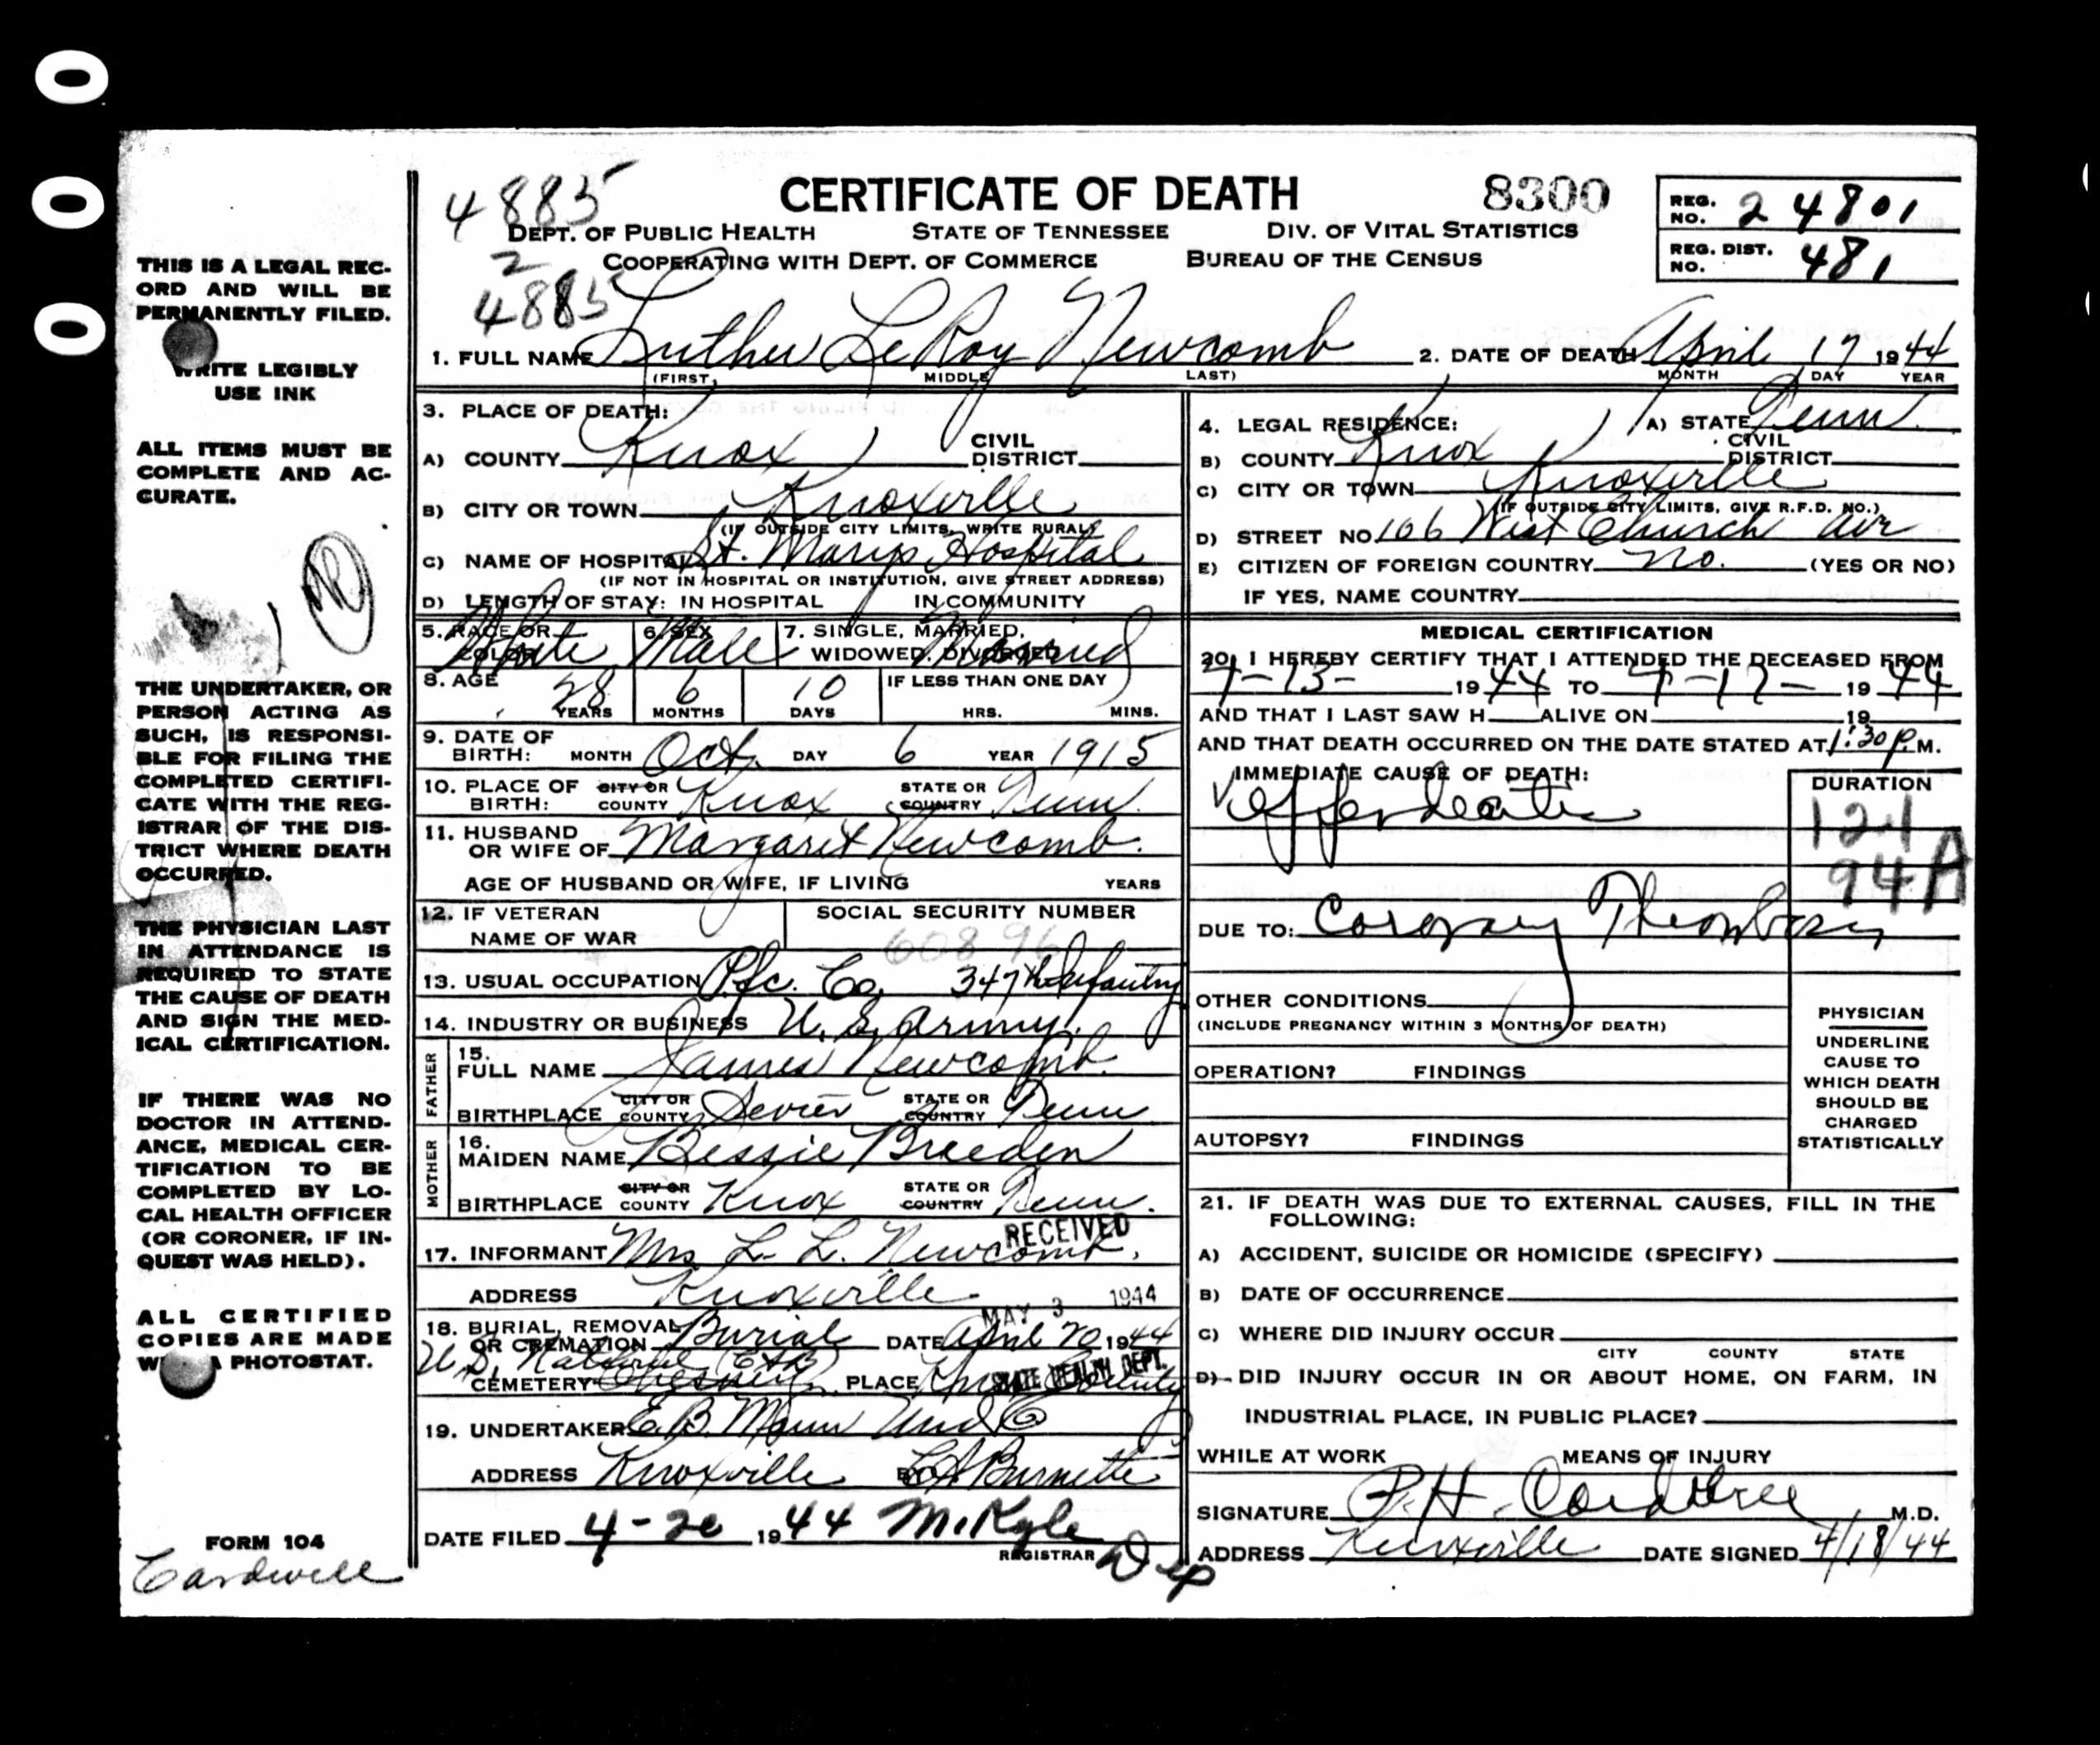 0 0 0
4885
CERTIFICATE OF DEATH
8300
REG. NO. 24801
DEPT. OF PUBLIC HEALTH STATE OF TENNESSEE DIV. OF VITAL STATISTICS
2
COOPERATING WITH DEPT. OF COMMERCE BUREAU OF THE CENSUS
REG. DIST. NO. 481
4885
1. FULL NAME Luther LeRoy Newcomb 2. DATE OF DEATH April 17 1944
(FIRST) MIDDLE LAST) MONTH DAY YEAR
THIS IS A LEGAL REC-
ORD AND WILL BE
PERMANENTLY FILED.
WRITE LEGIBLY
USE INK
ALL ITEMS MUST BE
COMPLETE AND AC-
CURATE.
THE UNDERTAKER, OR
PERSON ACTING AS
SUCH, IS RESPONSI-
BLE FOR FILING THE
COMPLETED CERTIFI-
CATE WITH THE REG-
ISTRAR OF THE DIS-
TRICT WHERE DEATH
OCCURRED.
THE PHYSICIAN LAST
IN ATTENDANCE IS
REQUIRED TO STATE
THE CAUSE OF DEATH
AND SIGN THE MED-
ICAL CERTIFICATION.
IF THERE WAS NO
DOCTOR IN ATTEND-
ANCE, MEDICAL CER-
TIFICATION TO BE
COMPLETED BY LO-
CAL HEALTH OFFICER
(OR CORONER, IF IN-
QUEST WAS HELD).
ALL CERTIFIED
COPIES ARE MADE
A PHOTOSTAT.
FORM 104
Cardwell
3. PLACE OF DEATH:
A) COUNTY Knox CIVIL DISTRICT
B) CITY OR TOWN Knoxville
(IF OUTSIDE CITY LIMITS, WRITE RURAL)
C) NAME OF HOSPITAL St. Marys Hospital
(IF NOT IN HOSPITAL OR INSTITUTION, GIVE STREET ADDRESS)
D) LENGTH OF STAY: IN HOSPITAL IN COMMUNITY
5. RACE OR COLOR White 6. SEX Male 7. SINGLE, MARRIED, WIDOWED, DIVORCED Married
8. AGE 28 YEARS 6 MONTHS 10 DAYS IF LESS THAN ONE DAY HRS. MINS.
9. DATE OF BIRTH: MONTH Oct. DAY 6 YEAR 1915
10. PLACE OF BIRTH: CITY OR COUNTY Knox STATE OR COUNTRY Tenn.
11. HUSBAND OR WIFE OF Margaret Newcomb.
AGE OF HUSBAND OR WIFE, IF LIVING YEARS
12. IF VETERAN NAME OF WAR SOCIAL SECURITY NUMBER
60896
13. USUAL OCCUPATION Pfc. Co. 347th Infantry
14. INDUSTRY OR BUSINESS U. S. Army.
FATHER
15. FULL NAME James Newcomb.
BIRTHPLACE CITY OR COUNTY Sevier STATE OR COUNTRY Tenn
MOTHER
16. MAIDEN NAME Bessie Breeden
BIRTHPLACE CITY OR COUNTY Knox STATE OR COUNTRY Tenn.
RECEIVED
17. INFORMANT Mrs L. L. Newcomb.
ADDRESS Knoxville
MAY 3 1944
18. BURIAL, REMOVAL OR CREMATION Burial DATE April 20 1944
U.S. National
STATE HEALTH DEPT.
CEMETERY PLACE Knox County
19. UNDERTAKER E. B. Mann Und Co
ADDRESS Knoxville BY Burnette
DATE FILED 4-20 1944 M. Kyle
REGISTRAR Dep
4. LEGAL RESIDENCE: A) STATE Tenn.
B) COUNTY Knox CIVIL DISTRICT
C) CITY OR TOWN Knoxville
(IF OUTSIDE CITY LIMITS, GIVE R.F.D. NO.)
D) STREET NO. 106 West Church Ave
E) CITIZEN OF FOREIGN COUNTRY no. (YES OR NO)
IF YES, NAME COUNTRY
MEDICAL CERTIFICATION
20. I HEREBY CERTIFY THAT I ATTENDED THE DECEASED FROM
4-13- 1944 TO 4-17- 1944
AND THAT I LAST SAW H ALIVE ON 19
AND THAT DEATH OCCURRED ON THE DATE STATED AT 1:30 P. M.
IMMEDIATE CAUSE OF DEATH:
DURATION
121
94A
DUE TO: Coronary Thrombosis
OTHER CONDITIONS
(INCLUDE PREGNANCY WITHIN 3 MONTHS OF DEATH)
OPERATION? FINDINGS
AUTOPSY? FINDINGS
PHYSICIAN
UNDERLINE
CAUSE TO
WHICH DEATH
SHOULD BE
CHARGED
STATISTICALLY
21. IF DEATH WAS DUE TO EXTERNAL CAUSES, FILL IN THE
FOLLOWING:
A) ACCIDENT, SUICIDE OR HOMICIDE (SPECIFY)
B) DATE OF OCCURRENCE
C) WHERE DID INJURY OCCUR
CITY COUNTY STATE
D) DID INJURY OCCUR IN OR ABOUT HOME, ON FARM, IN
INDUSTRIAL PLACE, IN PUBLIC PLACE?
WHILE AT WORK MEANS OF INJURY
SIGNATURE P. H. M.D.
ADDRESS Knoxville DATE SIGNED 4/18/44